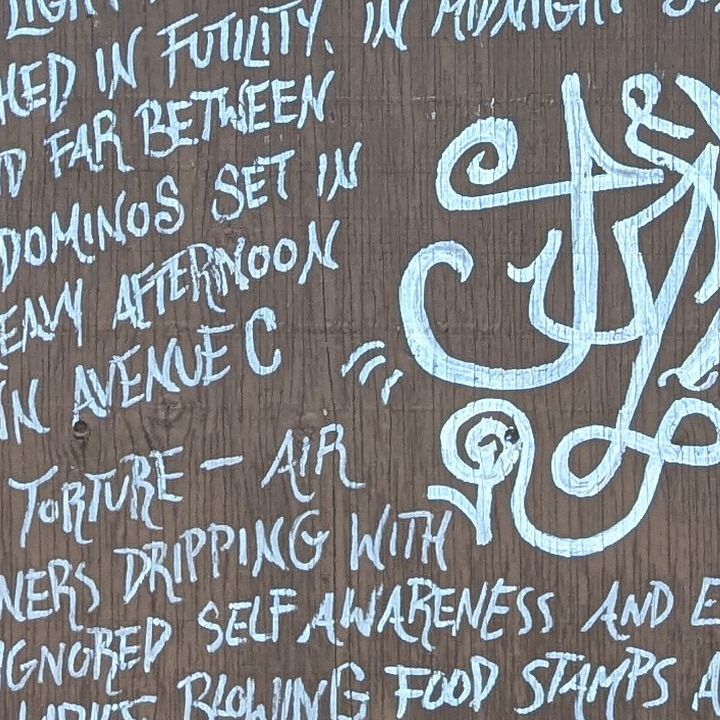 LIGHT
IN FUTILITY. IN MIDNIGHT
FAR BETWEEN
DOMINOS SET IN
AFTERNOON
IN AVENUE C
TORTURE – AIR
DRIPPING WITH
IGNORED SELF AWARENESS AND
BLOWING FOOD STAMPS